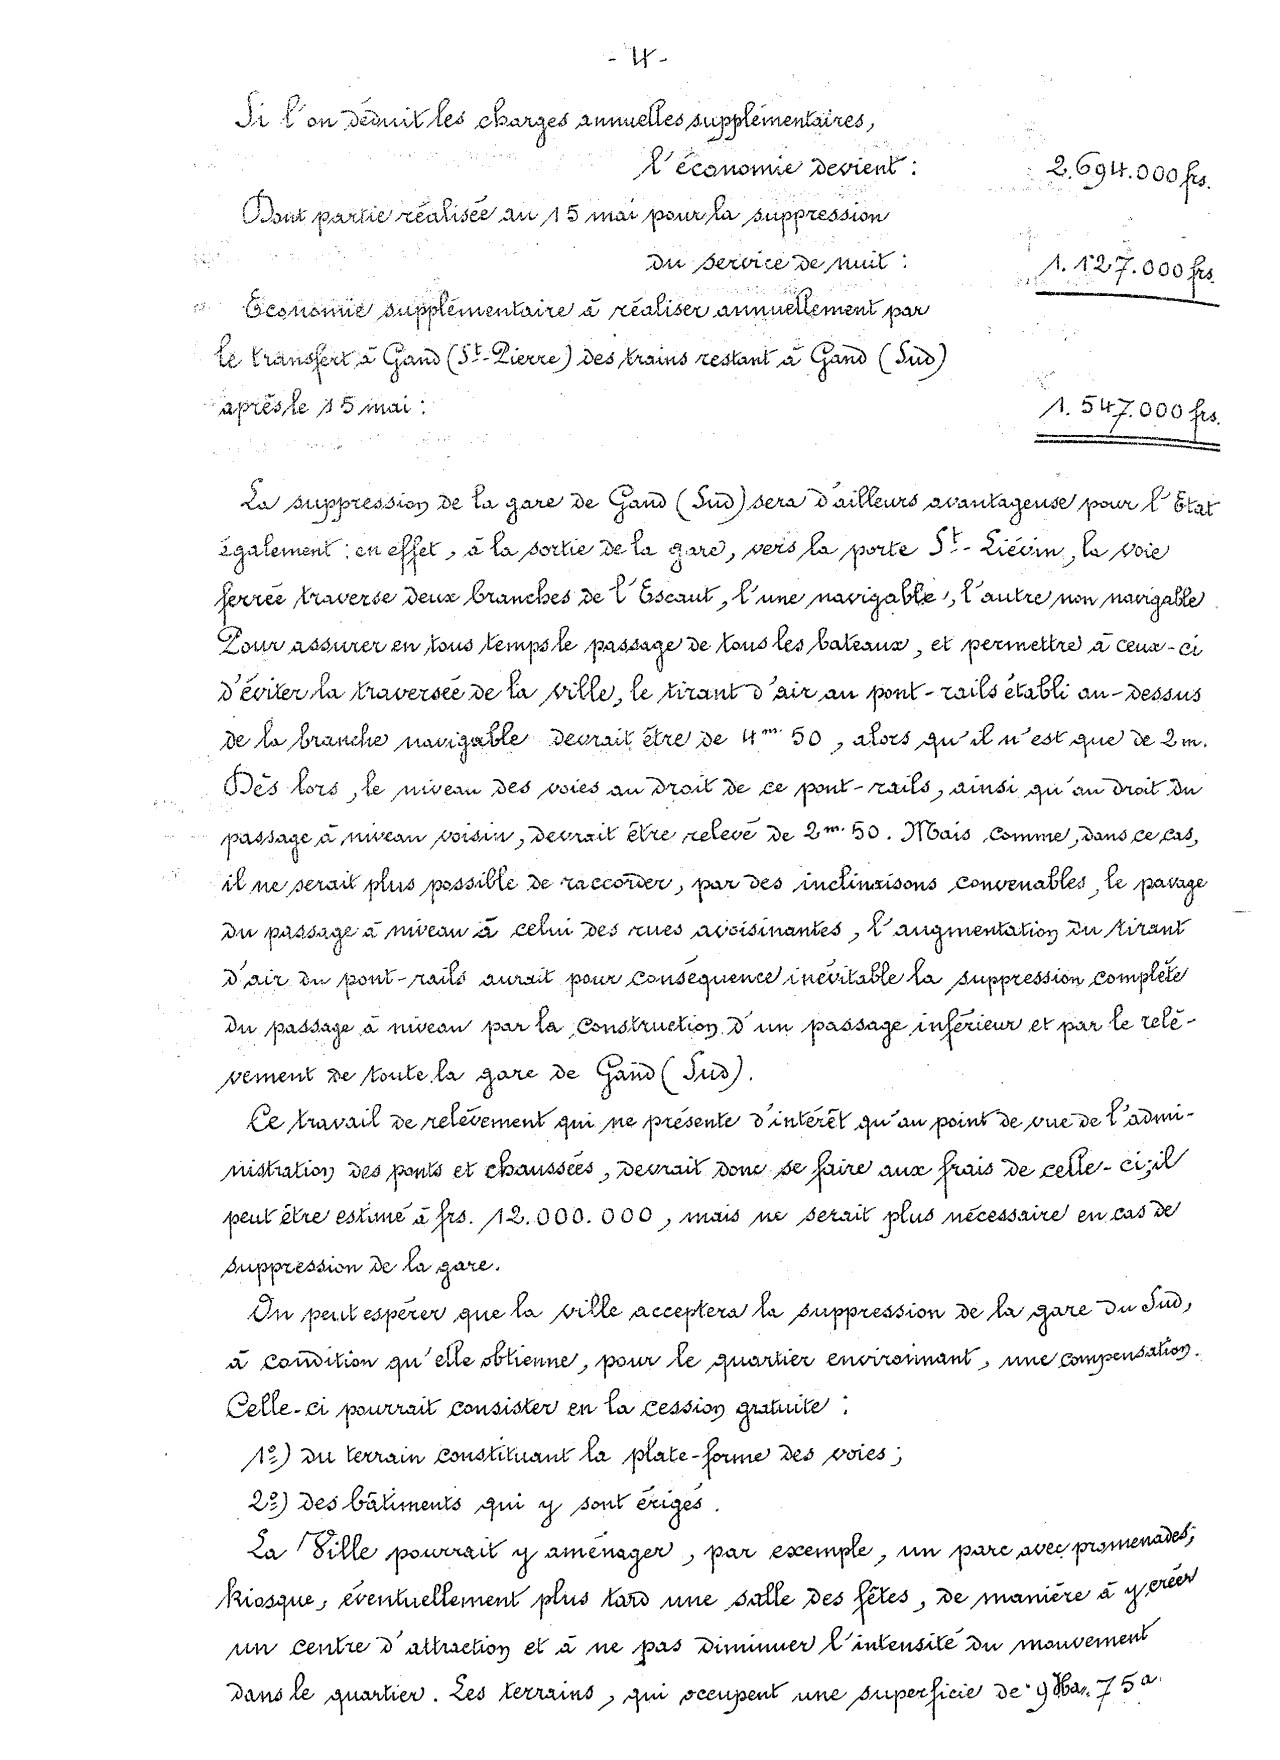 - 4 -
Si l'on déduit les charges annuelles supplémentaires,
l'économie devient : 2.694.000 frs.
Dont partie réalisée au 15 mai pour la suppression
du service de nuit : 1.127.000 frs.
Economie supplémentaire à réaliser annuellement par
le transfert à Gand (St-Pierre) des trains restant à Gand (Sud)
après le 15 mai : 1.547.000 frs.
La suppression de la gare de Gand (Sud) sera d'ailleurs avantageuse pour l'Etat
également : en effet, à la sortie de la gare, vers la porte St-Liévin, la voie
ferrée traverse deux branches de l'Escaut, l'une navigable, l'autre non navigable.
Pour assurer en tous temps le passage de tous les bateaux, et permettre à ceux-ci
d'éviter la traversée de la ville, le tirant d'air au pont-rails établi au-dessus
de la branche navigable devrait être de 4m.50, alors qu'il n'est que de 2m.
Dès lors, le niveau des voies au droit de ce pont-rails, ainsi qu'au droit du
passage à niveau voisin, devrait être relevé de 2m.50. Mais comme, dans ce cas,
il ne serait plus possible de raccorder, par des inclinaisons convenables, le pavage
du passage à niveau à celui des rues avoisinantes, l'augmentation du tirant
d'air du pont-rails aurait pour conséquence inévitable la suppression complète
du passage à niveau par la construction d'un passage inférieur et par le relè-
vement de toute la gare de Gand (Sud).
Ce travail de relèvement qui ne présente d'intérêt qu'au point de vue de l'admi-
nistration des ponts et chaussées, devrait donc se faire aux frais de celle-ci; il
peut être estimé à frs. 12.000.000, mais ne serait plus nécessaire en cas de
suppression de la gare.
On peut espérer que la ville acceptera la suppression de la gare du Sud,
à condition qu'elle obtienne, pour le quartier environnant, une compensation.
Celle-ci pourrait consister en la cession gratuite :
1º) du terrain constituant la plate-forme des voies;
2º) des bâtiments qui y sont érigés.
La Ville pourrait y aménager, par exemple, un parc avec promenades,
kiosque, éventuellement plus tard une salle des fêtes, de manière à y créer
un centre d'attraction et à ne pas diminuer l'intensité du mouvement
dans le quartier. Les terrains, qui occupent une superficie de 9 Has. 75 a.